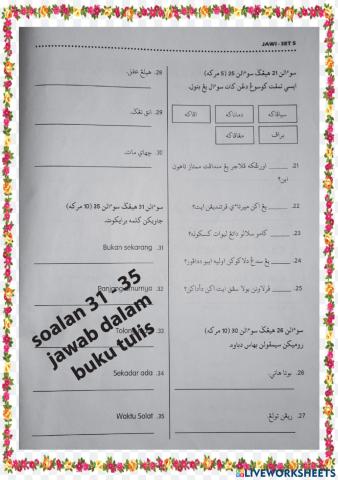 JAWI - SET 5
سوءالن 21 هيڠݢ سوءالن 25 (5 مركه)
ايسي تمڤت كوسوڠ دڠن كات سوءال يڠ بتول.
سياڤاكه
دماناكه
اڤاكه
براڤ
مڠاڤاكه
21. ______ اورڠكه ڤلاجر يڠ منداڤت ممتاز تاهون اين؟
22. ______ يڠ اكن ميرتاءي ڤرتنديڠن ايت؟
23. ______ كامو سلالو داتڠ ليوات كسكوله؟
24. ______ يڠ سدڠ دلاكوكن اوليه ايبو ددا ڤور؟
25. ______ ڤرلاونن بولا سيڤق ايت اكن دأداكن؟
سوءالن 26 هيڠݢ سوءالن 30 (10 مركه)
روميكن سيمڤولن بهاس دباوه.
26. بوتا هاتي.
27. ريڠن تولڠ.
28. هيلڠ عقل.
29. انق تڠݢ.
30. چهاي مات.
سوءالن 31 هيڠݢ سوءالن 35 (10 مركه)
جاويكن كلمه برايكوت.
31. Bukan sekarang
32. Panjang umurnya
33. Tolon
34. Sekadar ada
35. Waktu Solat
soalan 31 - 35
jawab dalam
buku tulis
LIVEWORKSHEETS